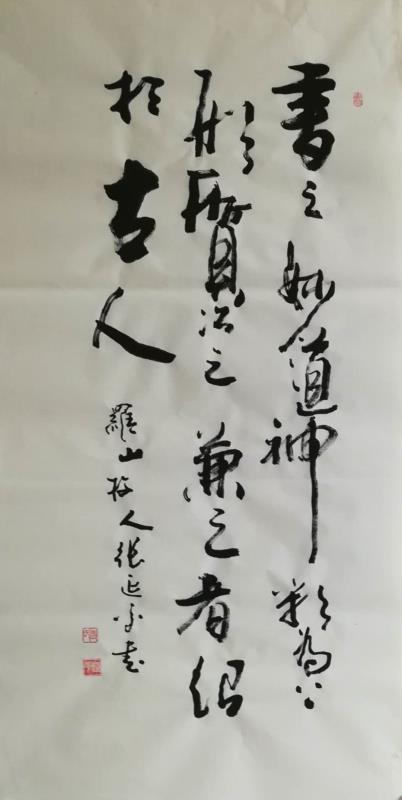 書之妙道神彩為上
形質次之兼之者紹
於古人
羅山人張延書